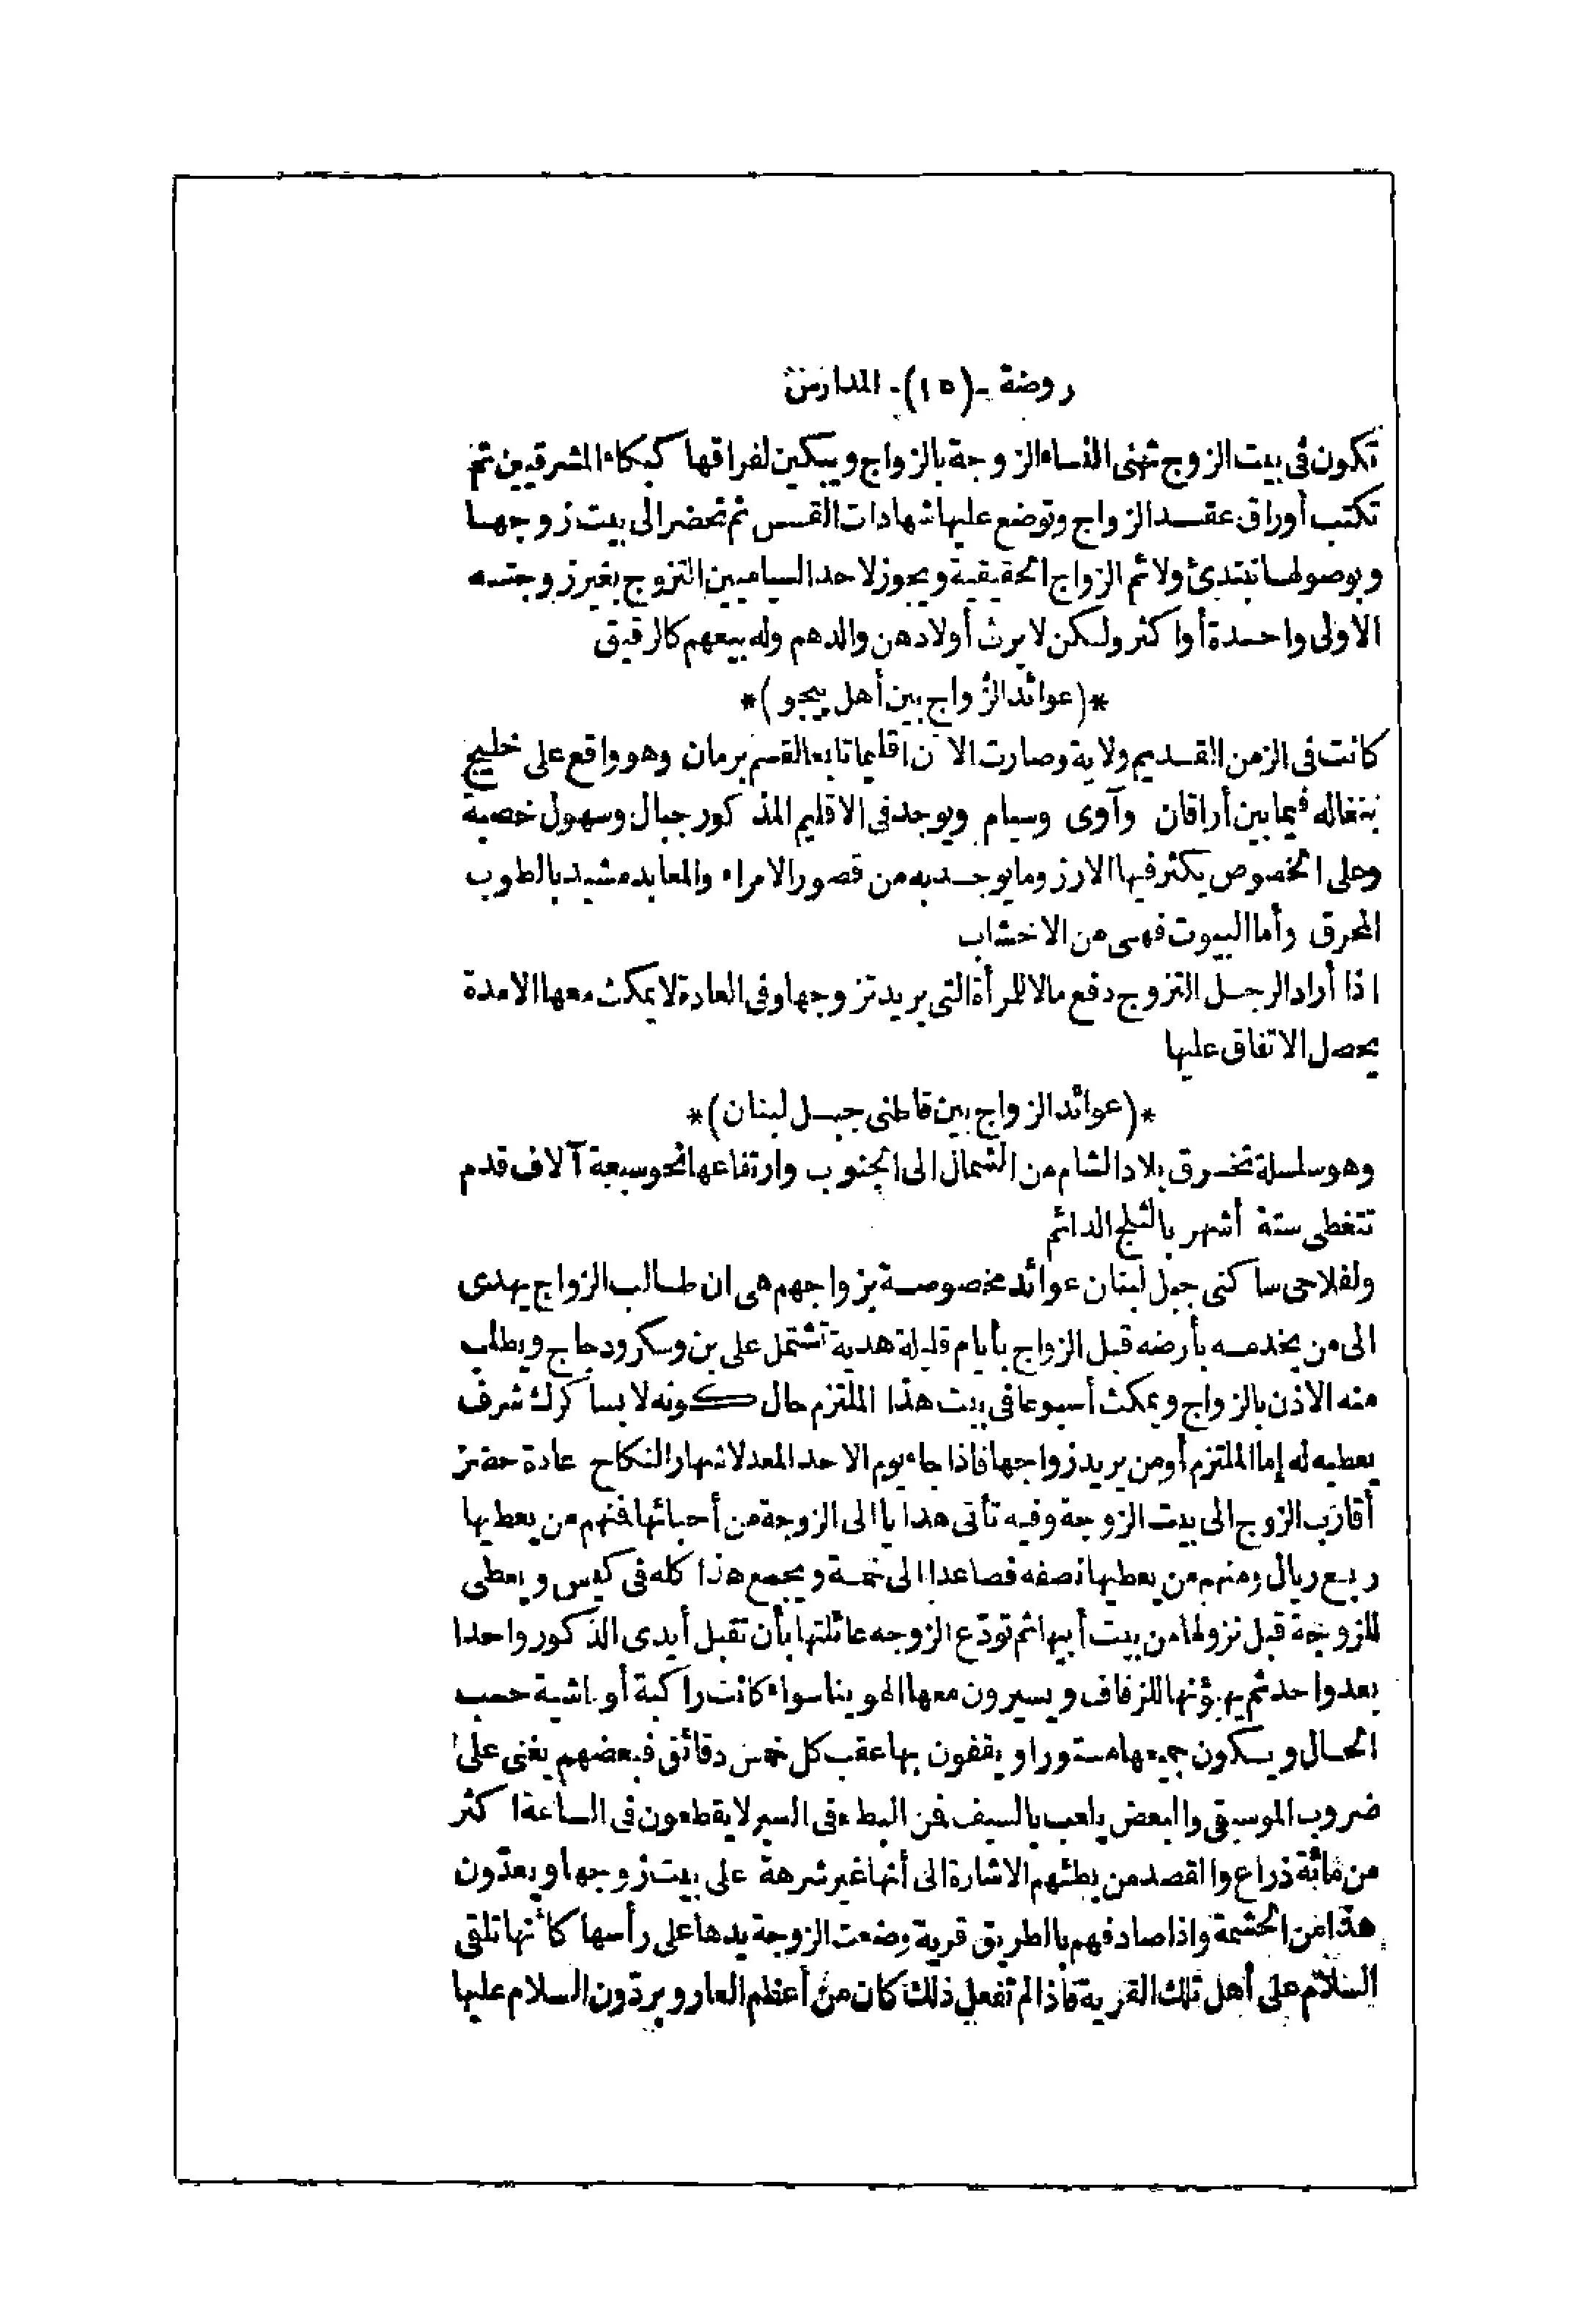 روضة -(١٥)- المدارس
تكون فى بيت الزوج تهنى النساء الزوجة بالزواج ويبكين لفراقها كبكاء المشرقيين ثم
تكتب أوراق عقد الزواج وتوضع عليها شهادات القسس ثم تحضر الى بيت زوجها
وبوصولها تبتدئ ولائم الزواج الحقيقية ويجوز لاحد السياميين التزوج بغير زوجته
الاولى واحدة أواكثر ولكن لا يرث أولادهن والدهم وله بيعهم كالرقيق
*(عوائد الزواج بين أهل بيجو)*
كانت فى الزمن القديم ولاية وصارت الآن اقليما تابعا لقسم برمان وهو واقع على خليج
بنغاله فيما بين أراقان وآوى وسيام ويوجد فى الاقليم المذكور جبال وسهول خصبة
وعلى الخصوص يكثر فيها الارز وما يوجد به من قصور الامراء والمعابد مشيد بالطوب
المحرق وأما البيوت فهى من الاخشاب
اذا أراد الرجل التزوج دفع مالا للمرأة التى يريد تزوجها وفى العادة لا يمكث معها الامدة
يحصل الاتفاق عليها
*(عوائد الزواج بين قاطنى جبل لبنان)*
وهو سلسلة تخرق بلاد الشام من الشمال الى الجنوب وارتفاعها نحو سبعة آلاف قدم
تتغطى ستة أشهر بالثلج الدائم
ولفلاحى ساكنى جبل لبنان عوائد مخصوصة بزواجهم هى ان طالب الزواج يهدى
الى من يخدمه بأرضه قبل الزواج بأيام قليلة هدية تشتمل على بن وسكر ودجاج ويطلب
منه الاذن بالزواج ويمكث أسبوعا فى بيت هذا الملتزم حال كونه لابسا كرك شرف
يعطيه له إما الملتزم أو من يريد زواجها فاذا جاء يوم الاحد المعد لاشهار النكاح عادة حضر
أقارب الزوج الى بيت الزوجة وفيه تأتى هدايا الى الزوجة من أحبائها فمنهم من يعطيها
ربع ريال ومنهم من يعطيها نصفه فصاعدا الى خمسة ويجمع هذا كله فى كيس ويعطى
للزوجة قبل نزولها من بيت أبيها ثم تودّع الزوجه عائلتها بأن تقبل أيدى الذكور واحدا
بعد واحد ثم يهيؤنها للزفاف ويسيرون معها الهوينا سواء كانت راكبة أو ماشية حسب
الحال ويكون جميعها مستورا ويقفون بها عقب كل خمس دقائق فبعضهم يغنى على
ضروب الموسيقى والبعض يلعب بالسيف فمن البطء فى السير لا يقطعون فى الساعة اكثر
من مائة ذراع والقصد من بطئهم الاشارة الى أنها غير شرهة على بيت زوجها ويعدّون
هذا من الحشمة واذا صادفهم بالطريق قرية وضعت الزوجة يدها على رأسها كأنها تلقى
السلام على أهل تلك القرية فاذا لم تفعل ذلك كان من أعظم العار ويردّون السلام عليها